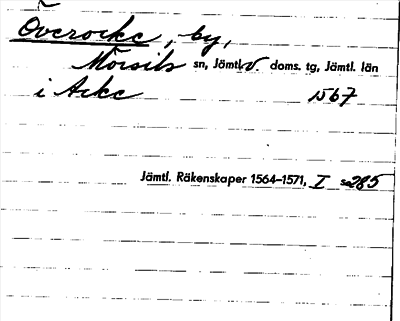 Överocke, by,
Mörsils sn, Jämtl. v. doms. tg, Jämtl. län
i Åcke 1567
Jämtl. Räkenskaper 1564–1571, I s. 285